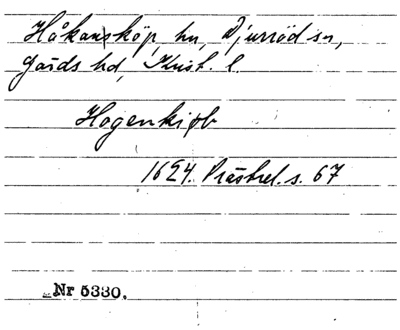 Håkansköp, hn, Djurröd sn,
Gärds hd, Krist. l.
Hogenkiøb
1624. Prästrel. s. 67
Nr 5330.